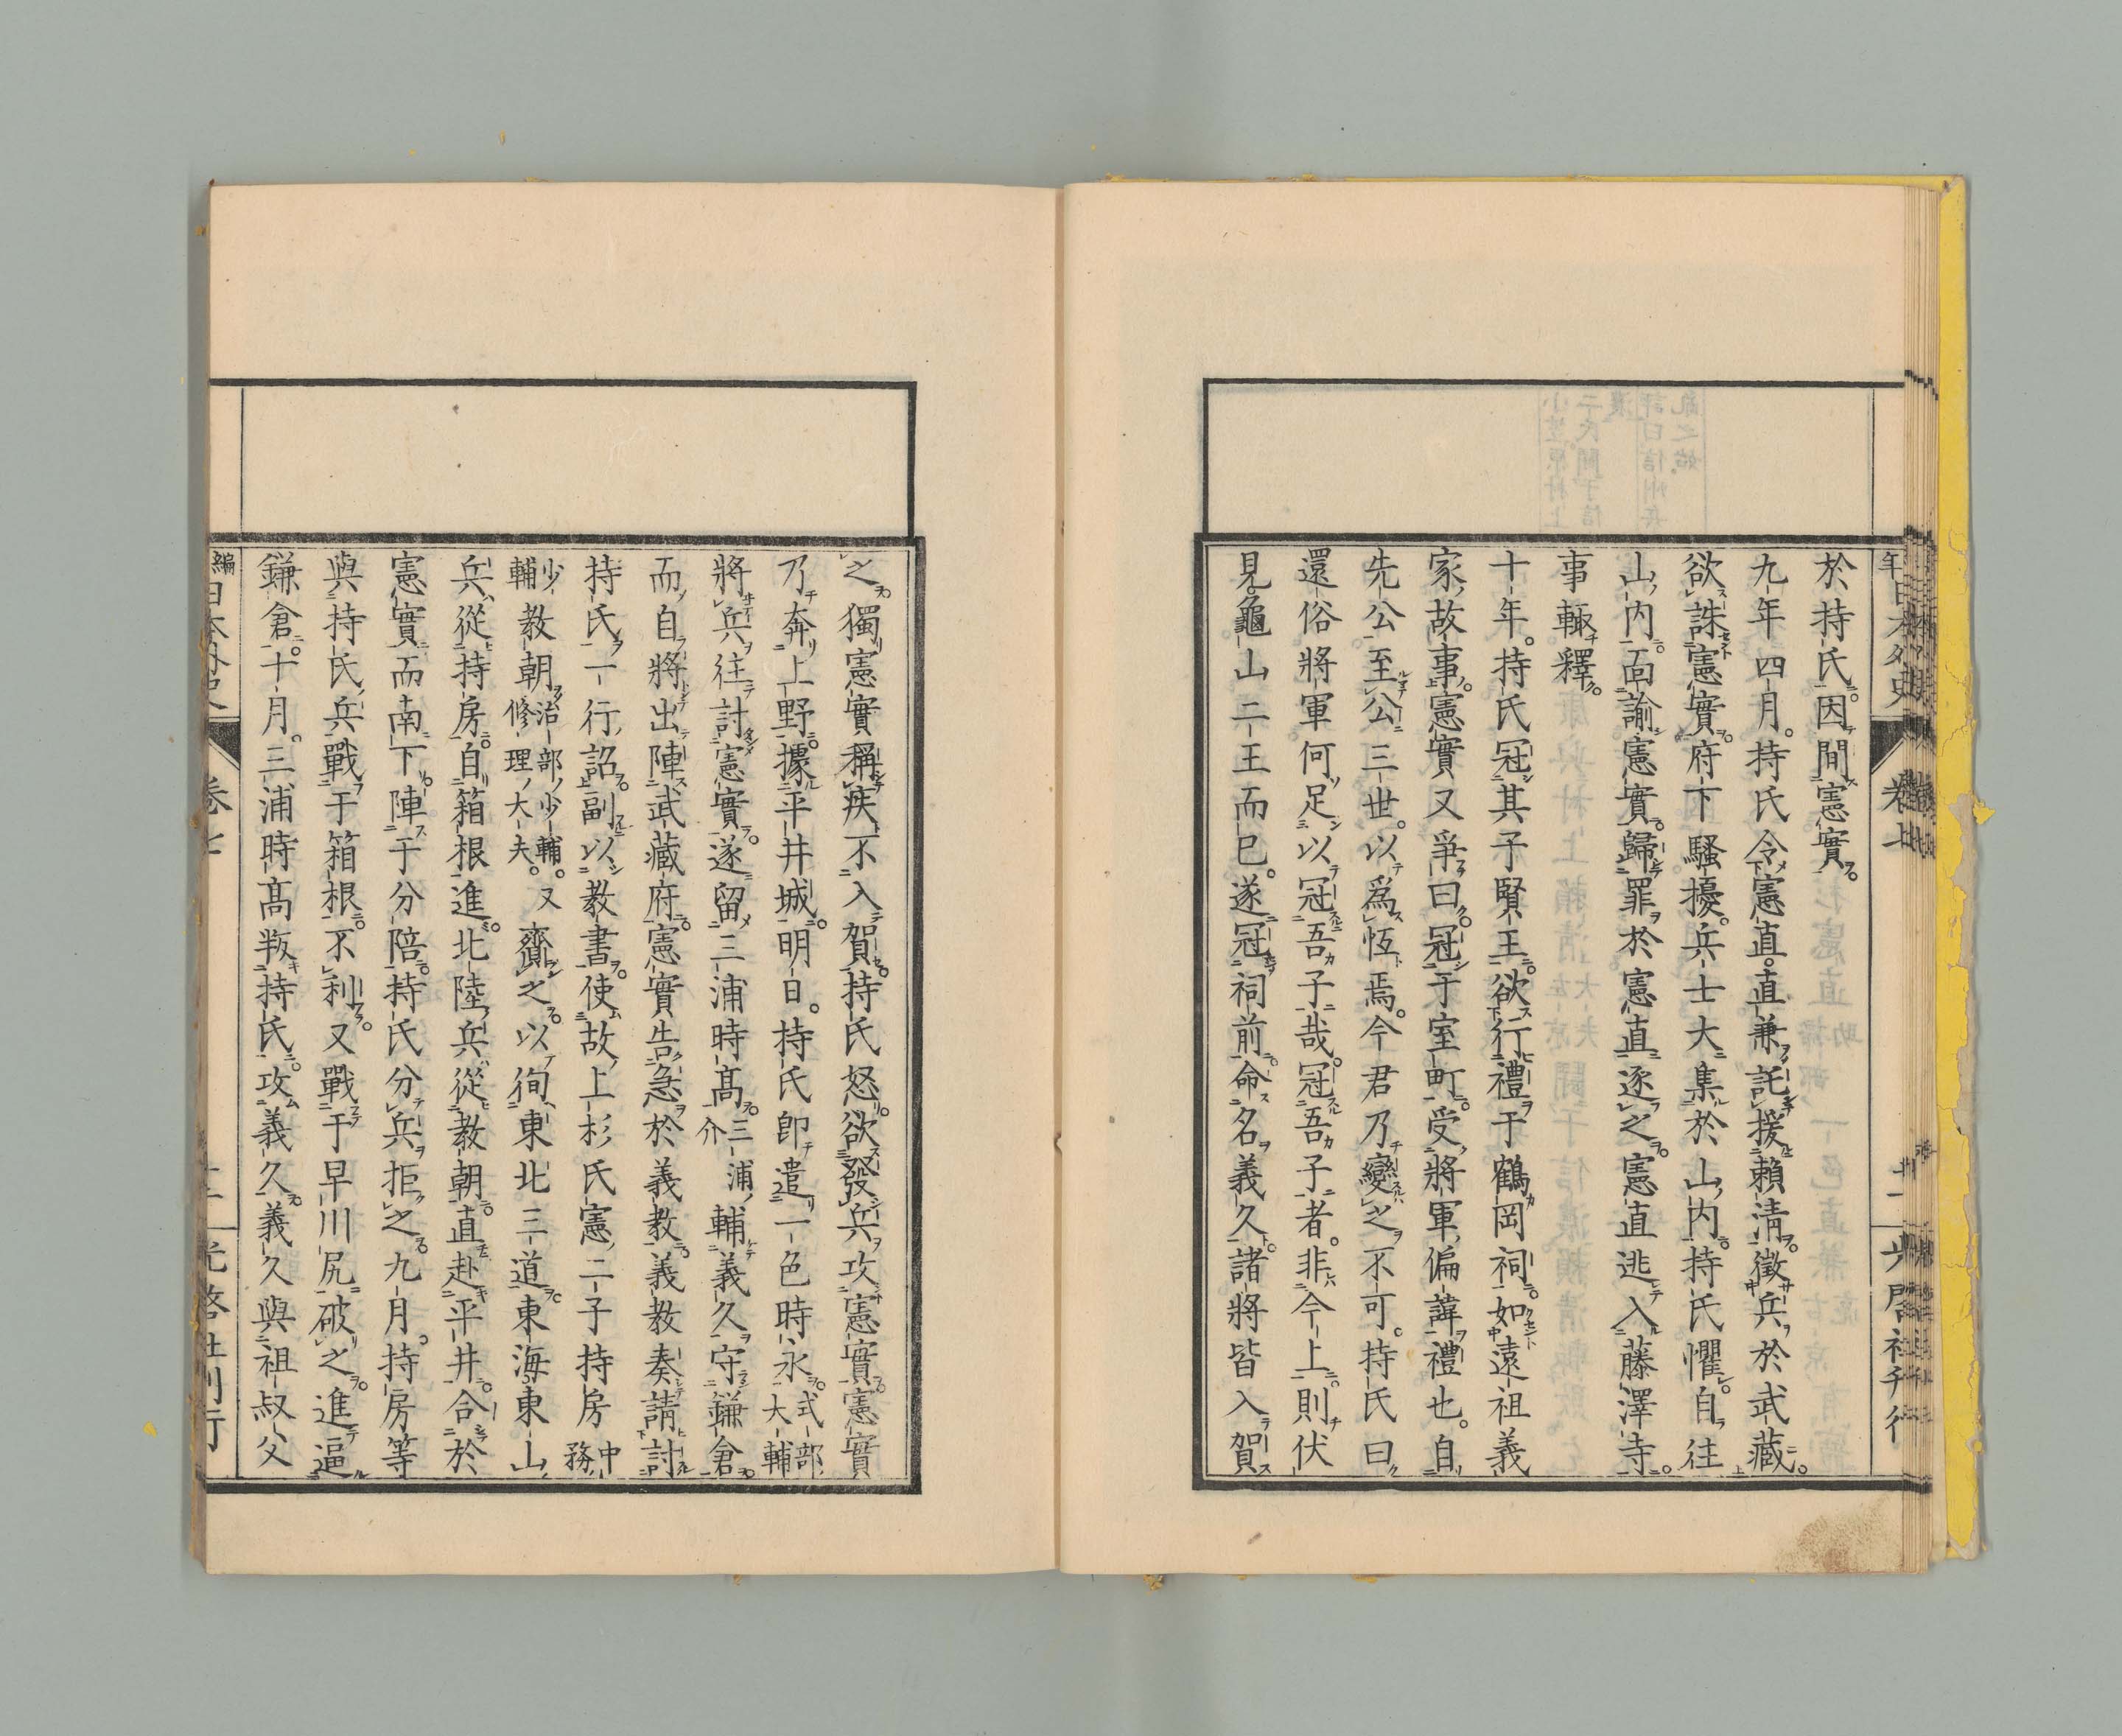 於持氏因間憲實。
九年四月。持氏令憲直。直兼託援賴淸。徵兵於武藏。
欲誅憲實。府下騷擾。兵士大集於山內。持氏懼。自往
山內。面諭憲實。歸罪於憲直逐之。憲直逃入藤澤寺。
事輙釋。
十年。持氏冠其子賢王。欲行禮于鶴岡祠。如遠祖義
家故事。憲實又爭曰。冠于室町。受將軍偏諱禮也。自
先公至公三世。以爲恆焉。今君乃變之不可。持氏曰
還俗將軍何足以冠吾子哉。冠吾子者。非今上則伏
見龜山二王而已。遂冠祠前。命名義久。諸將皆入賀
卷七
之。獨憲實稱疾不入賀。持氏怒。欲發兵攻憲實。憲實
乃奔上野。據平井城。明日。持氏卽遣一色時永式部大輔
將兵往討憲實。遂留三浦時高三浦介輔義久守鎌倉
而自將出陣武藏府。憲實告急於義敎。義敎奏請討
持氏。一行詔副以敎書。使故上杉氏憲二子持房中務
少輔敎朝治部少輔。修理大夫。又齎之。以徇東北三道。東海東山
兵從持房。自箱根進。北陸兵從敎朝。直赴平井。合於
憲實而南下。陣于分陪。持氏分兵拒之。九月。持房等
與持氏兵戰于箱根。不利。又戰于早川尻。破之。進逼
鎌倉。十月。三浦時高叛持氏。攻義久。義久與祖叔父
日本外史
卷七
光啓社刊行